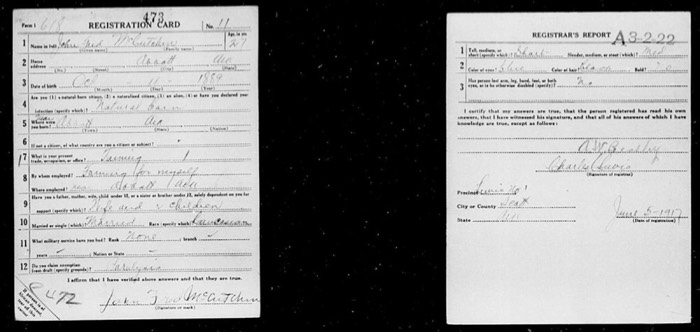 Form 1 618 473 REGISTRATION CARD No. 11
1 Name in full John Fred McCutchen Age, in yrs. 27
(Given name) (Family name)
2 Home address Abbott Ark
(No.) (Street) (City) (State)
3 Date of birth Oct 1889
(Month) (Day) (Year)
4 Are you (1) a natural-born citizen, (2) a naturalized citizen, (3) an alien, (4) or have you declared your
intention (specify which)? Natural born
5 Where were you born? Abbott Ark
(Town) (State) (Nation)
6 If not a citizen, of what country are you a citizen or subject?
7 What is your present trade, occupation, or office? Farming
8 By whom employed? Farming for myself
Where employed? Abbott Ark
9 Have you a father, mother, wife, child under 12, or a sister or brother under 12, solely dependent on you for
support (specify which)? Wife and 2 children
10 Married or single (which)? Married Race (specify which)? Caucasian
11 What military service have you had? Rank None branch
years Nation or State
12 Do you claim exemption from draft (specify grounds)? Paralysis
I affirm that I have verified above answers and that they are true.
8472 John Fred McCutchen
(Signature or mark)
REGISTRAR'S REPORT A 3-2-22
1 Tall, medium, or short (specify which)? Short Slender, medium, or stout (which)? Med
2 Color of eyes? Color of hair? Black Bald? No
3 Has person lost arm, leg, hand, foot, or both eyes, or is he otherwise disabled (specify)? No
I certify that my answers are true, that the person registered has read his own
answers, that I have witnessed his signature, and that all of his answers of which I have
knowledge are true, except as follows:
(Signature of registrar)
Precinct Lewis No 1
City or County Scott
State Ark June 5-1917
(Date of registration)